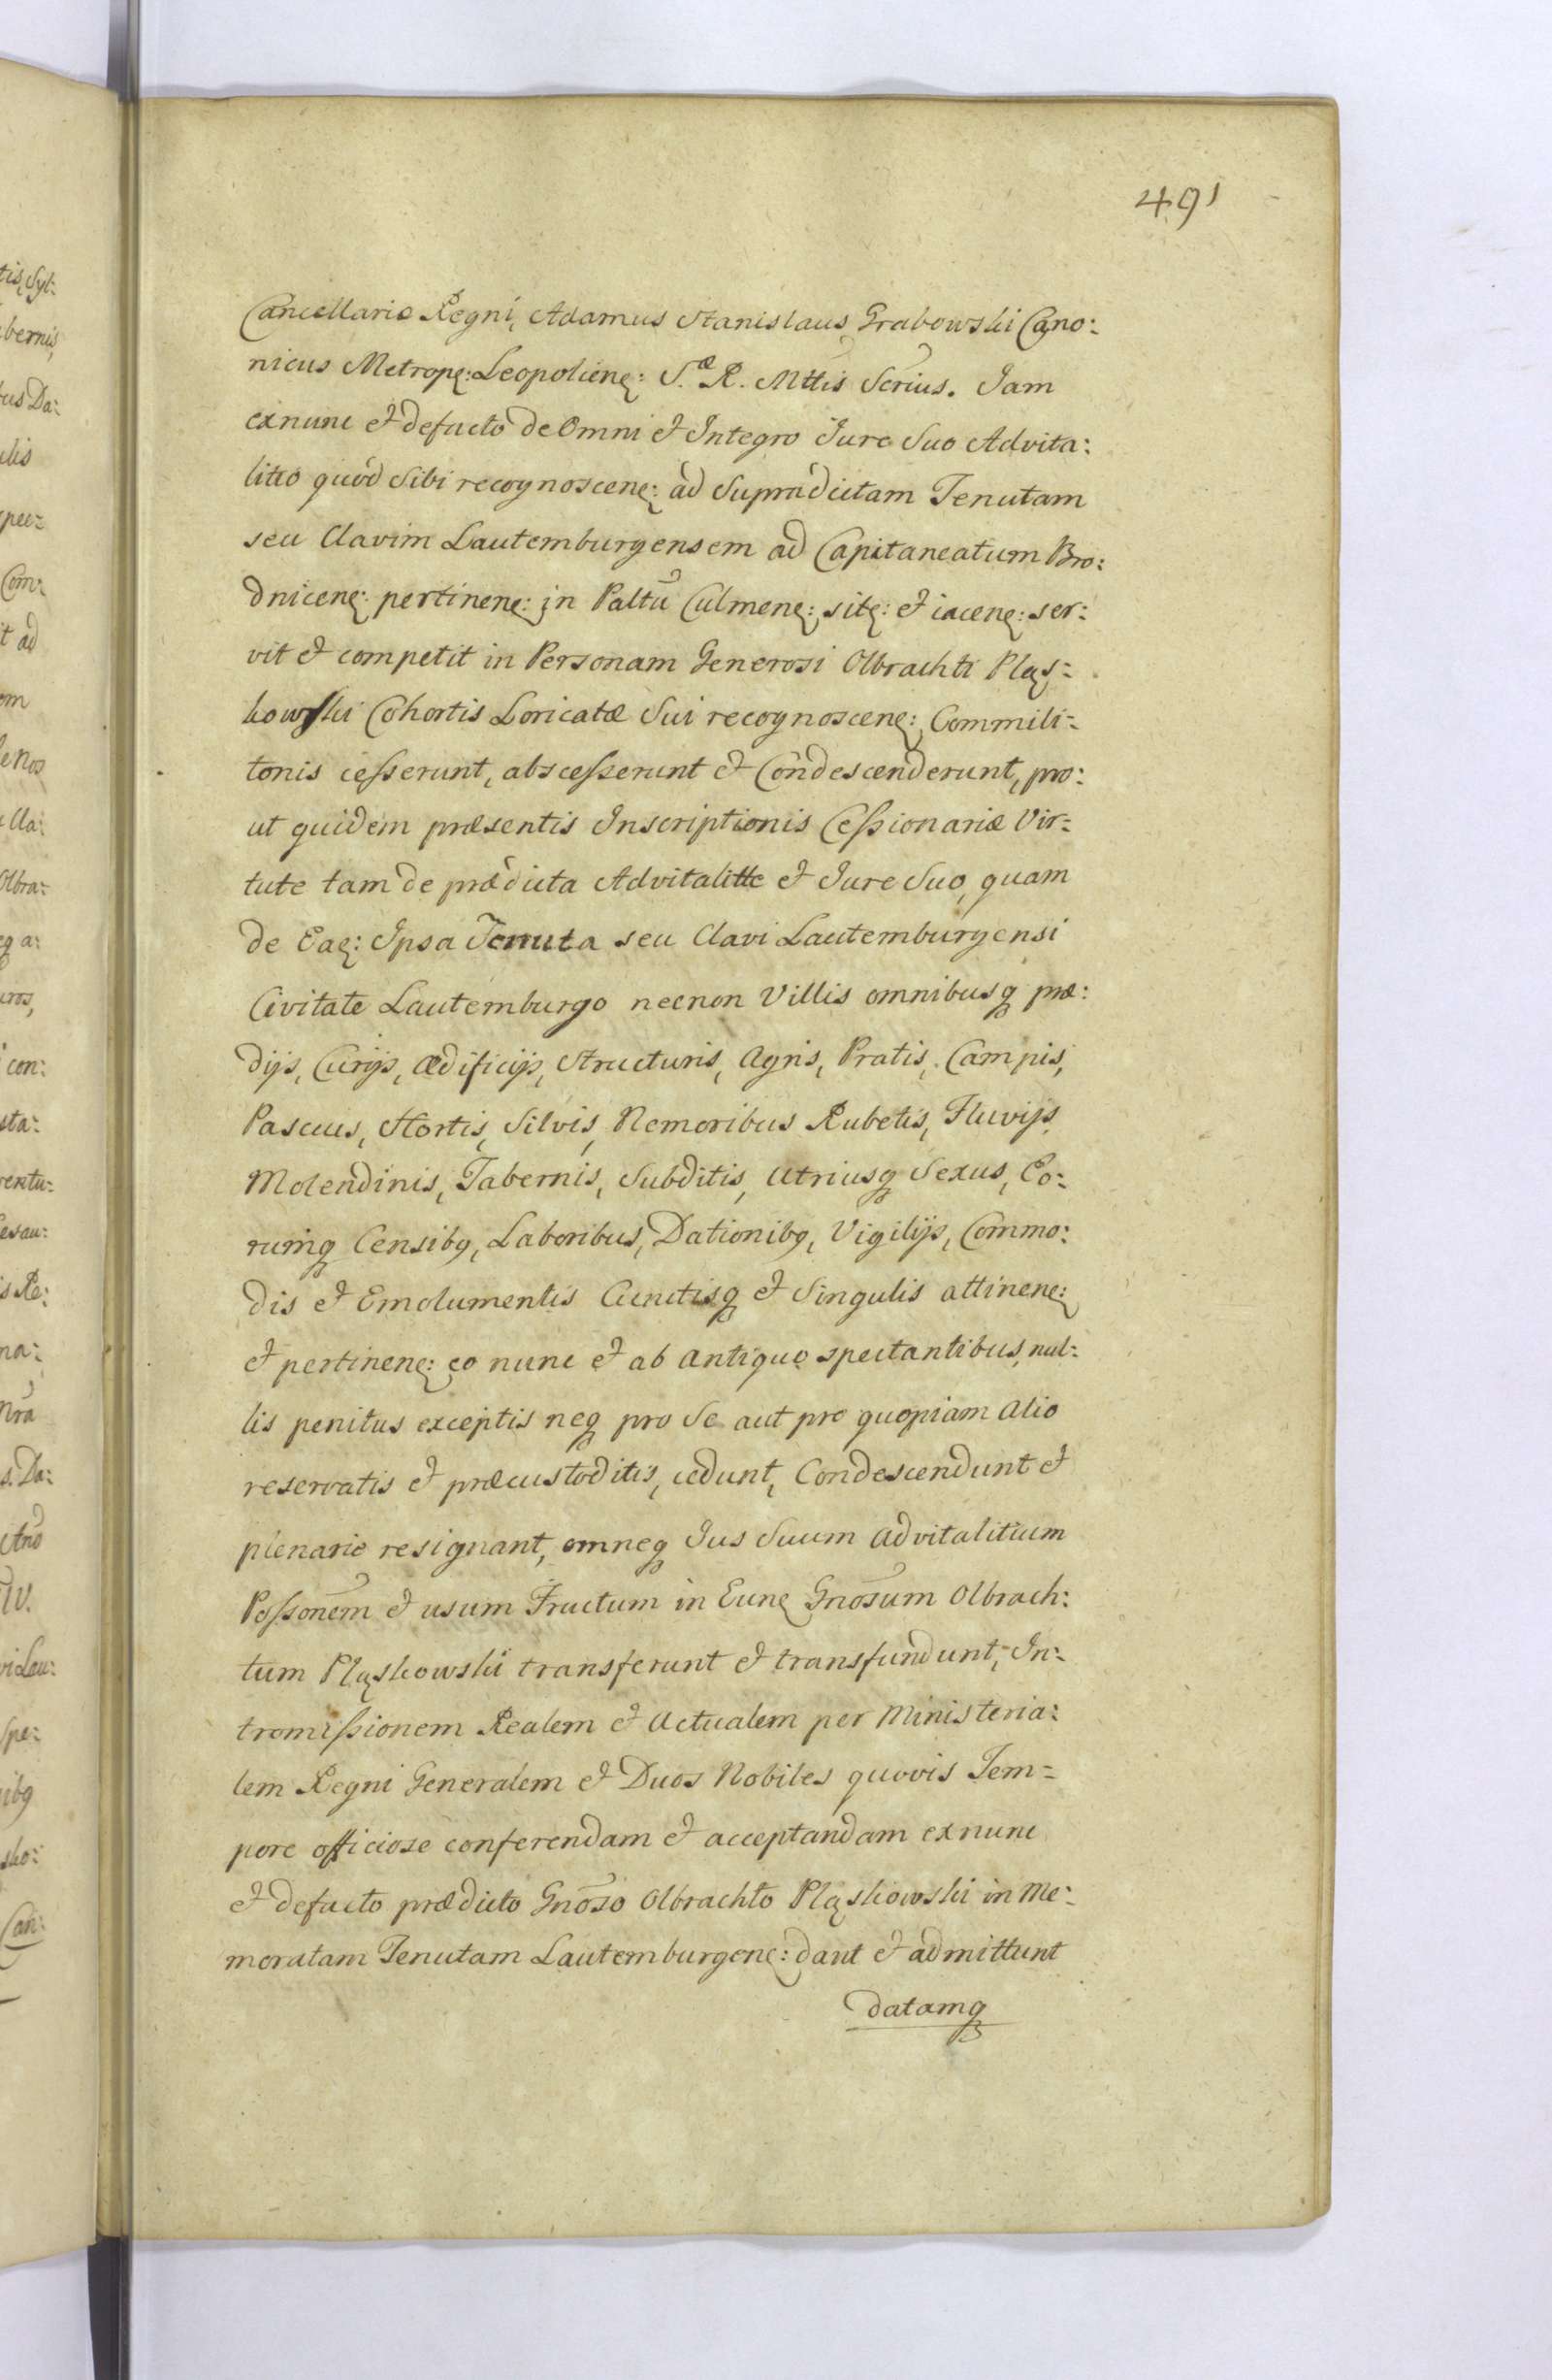 491
Cancellariæ Regni, Adamus Stanislaus Grabowski Cano:
nicus Metropę: Leopolienę: S.æ R. Mttis Scrius. Jam
exnunc et defacto de Omni et Integro Jure Suo Advita:
litio quod Sibi recognoscenę: ad Supradictam Tenutam
seu Clavim Lautemburgensem ad Capitaneatum Bro:
dnicenę: pertinenę: in Paltū Culmenę: sitę: et iacenę: ser:
vit et competit in Personam Generosi Olbrachti Pląs=
kowski Cohortis Loricatæ Sui recognoscenę: Commili=
tonis cesserunt, abscesserunt et Condescenderunt, pro:
ut quidem præsentis Inscriptionis Cessionariæ Vir=
tute tam de prædicta Advitalitte et Jure Suo, quam
de Eaę: Ipsa Tenuta seu Clavi Lautemburgensi
Civitate Lautemburgo necnon Villis omnibusq præ:
dijs, Curijs, ædificijs, structuris, Agris, Pratis, Campis,
Pascuis, Hortis, Silvis, Nemoribus Rubetis, Fluvijs
Molendinis, Tabernis, Subditis, Utriusq Sexus, Eo:
rumq Censibq, Laboribus, Dationibq, Vigilijs, Commo:
dis et Emolumentis Cunctisq et Singulis attinenę:
et pertinenę: eo nunc et ab antiquo spectantibus, nul:
lis penitus exceptis neq pro Se aut pro quopiam alio
reservatis et præcustoditis, cedunt, Condescendunt et
plenarie resignant, omneq Jus Suum advitalitium
Possonēm et usum Fructum in Eunę Gnōsum Olbrach:
tum Pląskowski transferunt et transfundunt, In:
tromissionem Realem et Actualem per Ministeria:
lem Regni Generalem et Duos Nobiles quovis Tem=
pore officiose conferendam et acceptandam exnunc
et defacto prædicto Gnōso Olbrachto Pląskowski in Me:
moratam Tenutam Lautemburgenę: dant et admittunt
datamq